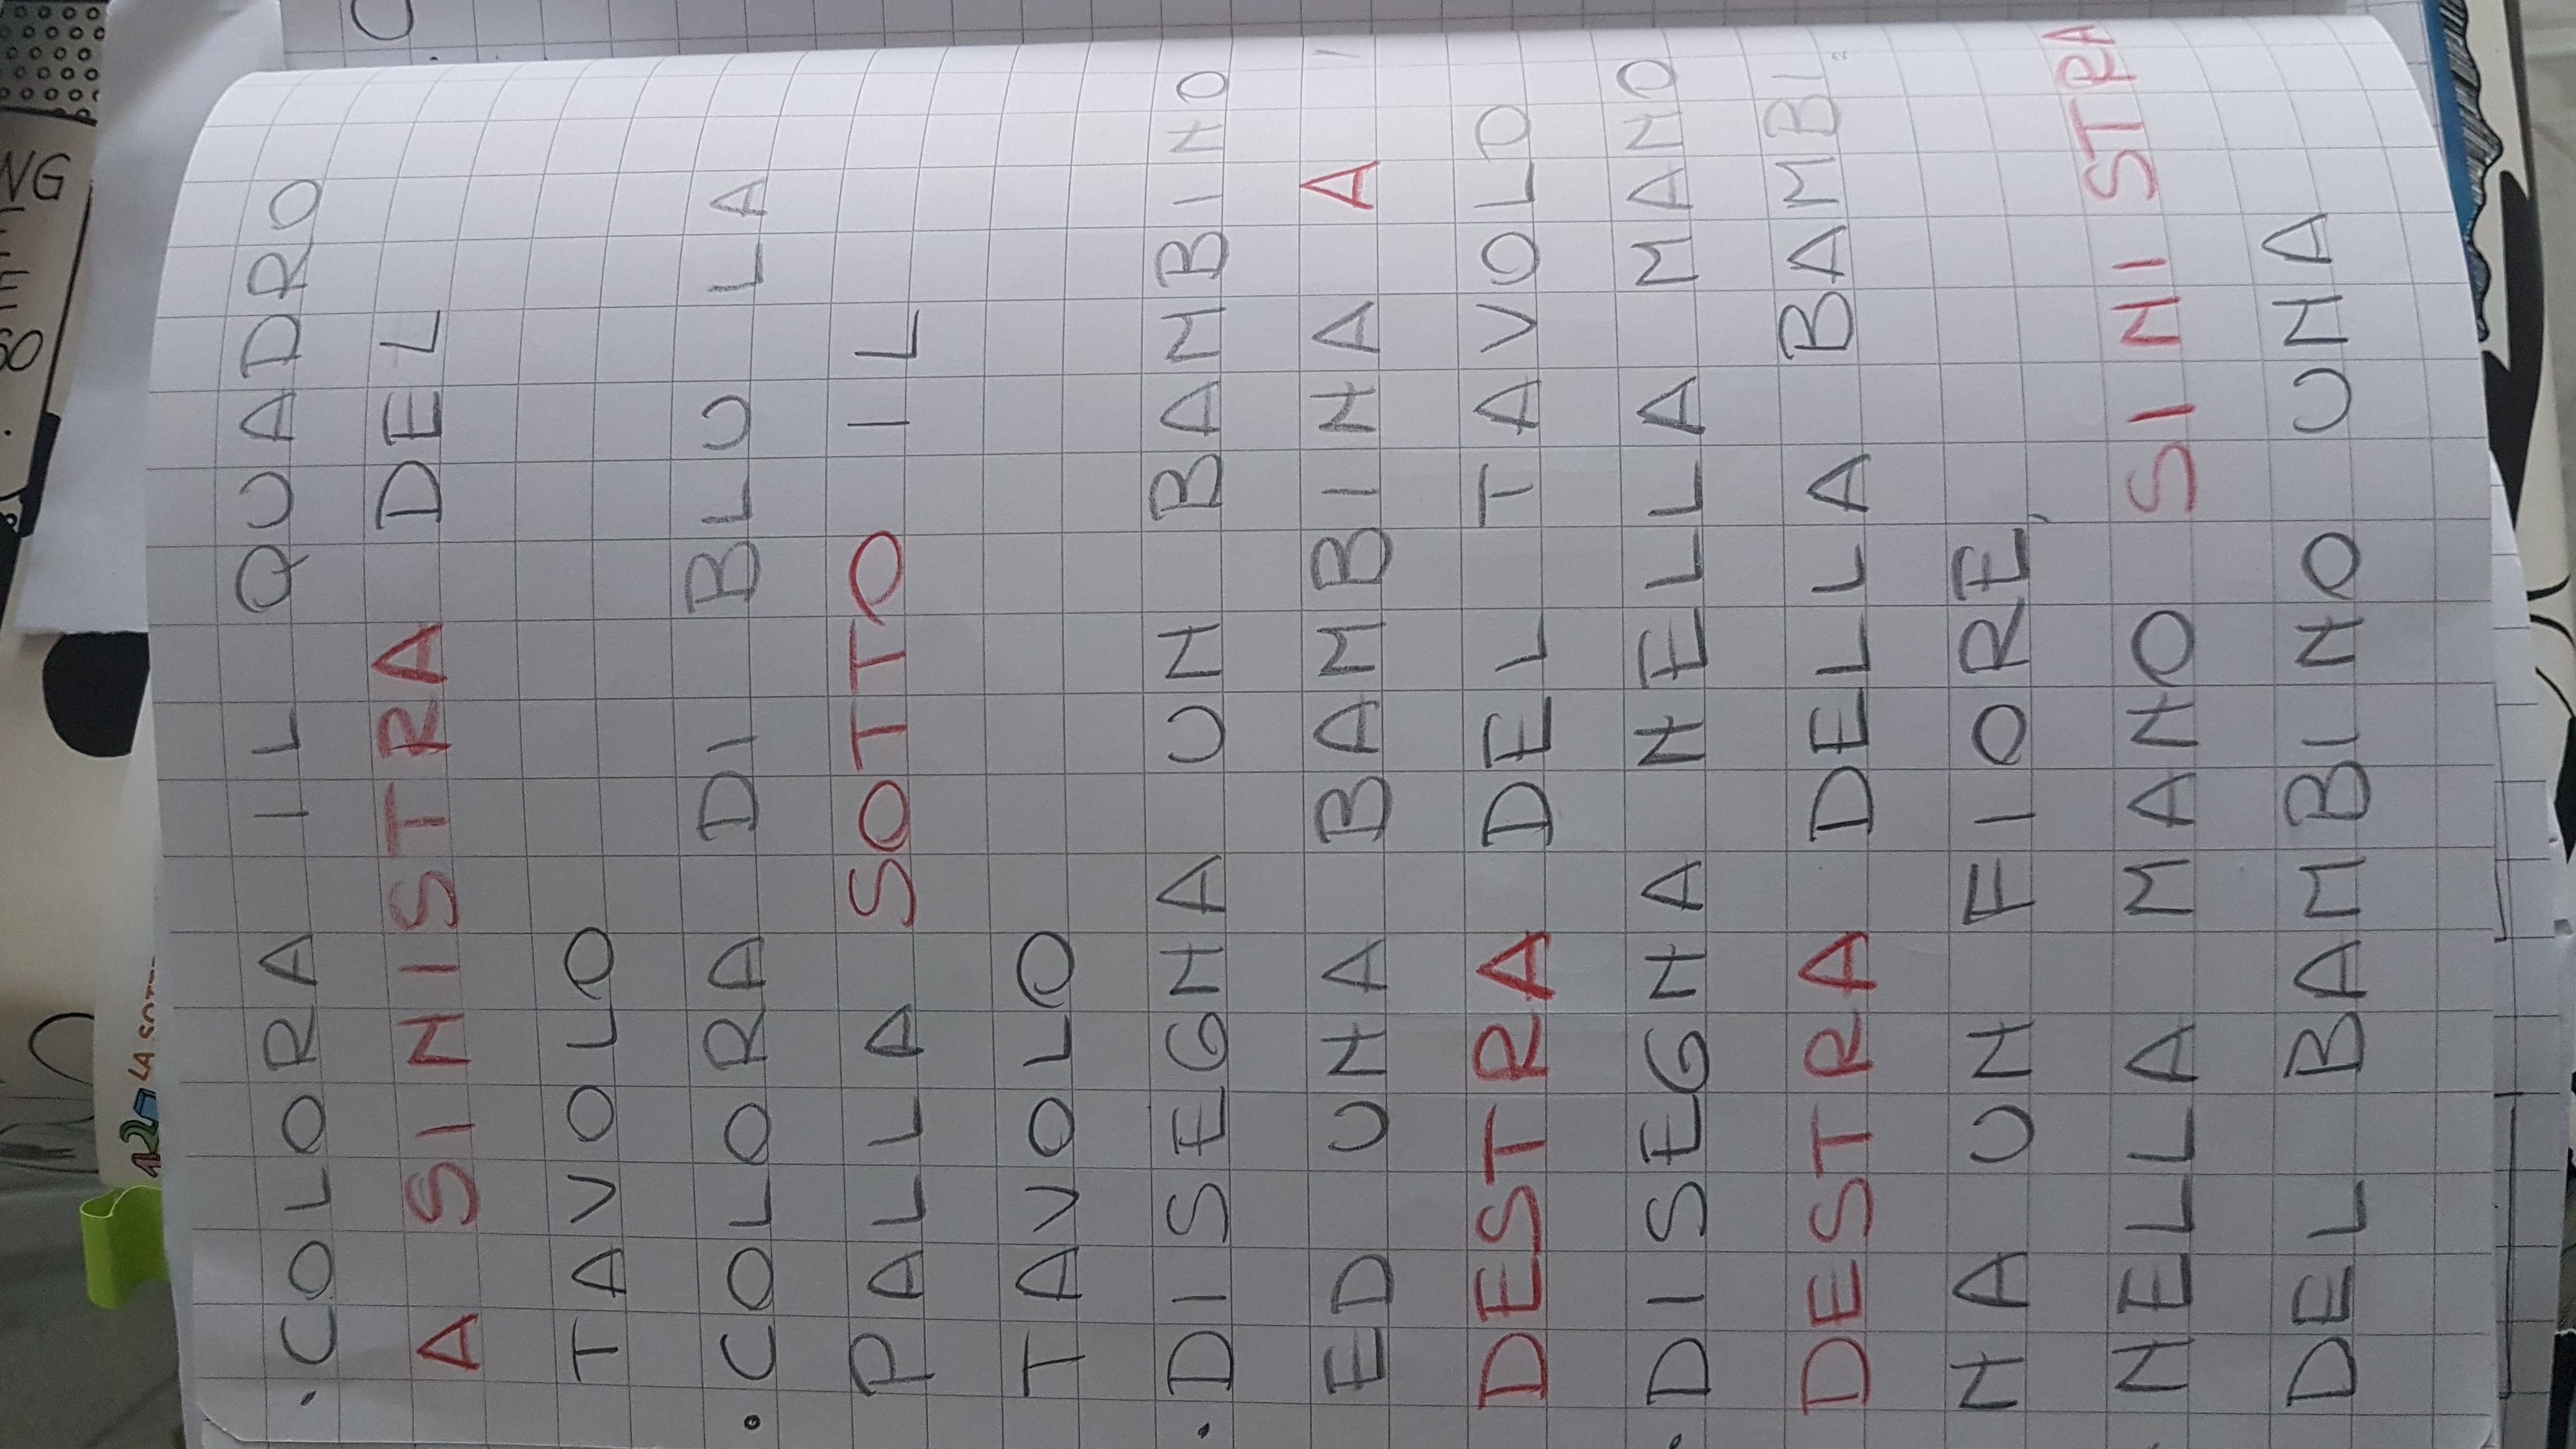 LA SOTT
NG
· COLORA IL QUADRO
A SINISTRA DEL
TAVOLO
· COLORA DI BLU LA
PALLA SOTTO IL
TAVOLO
· DISEGNA UN BAMBINO
ED UNA BAMBINA A
DESTRA DEL TAVOLO
· DISEGNA NELLA MANO
DESTRA DELLA BAMBI=
NA UN FIORE,
· NELLA MANO SINISTRA
DEL BAMBINO UNA